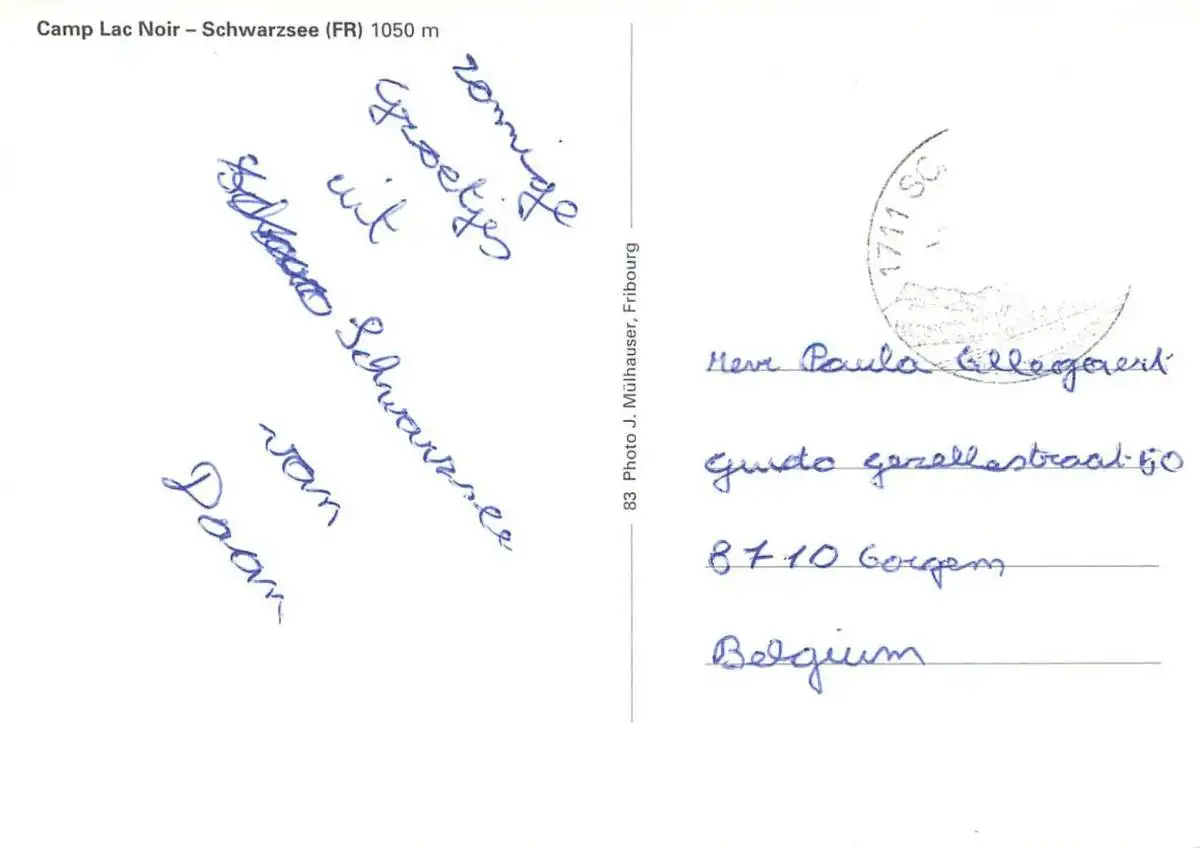 Camp Lac Noir – Schwarzsee (FR) 1050 m
zonnige
Groetjes
uit
Schwarzsee
van
Daan
83 Photo J. Mülhauser, Fribourg
1711 SC
Mevr Paula
Guido Gezellestraat 50
8710
Belgium